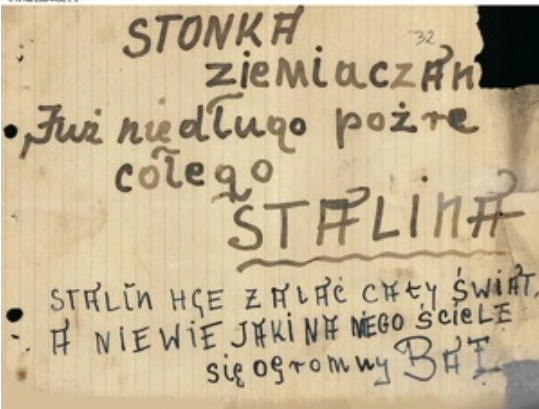 STONKA 32
ziemiaczan
Już niedługo pożre
całego
STALINA
STALIN HCE ZALAĆ CAŁY ŚWIAT,
A NIEWIE JAKI NA NIEGO ŚCIELE
się ogromny BAT